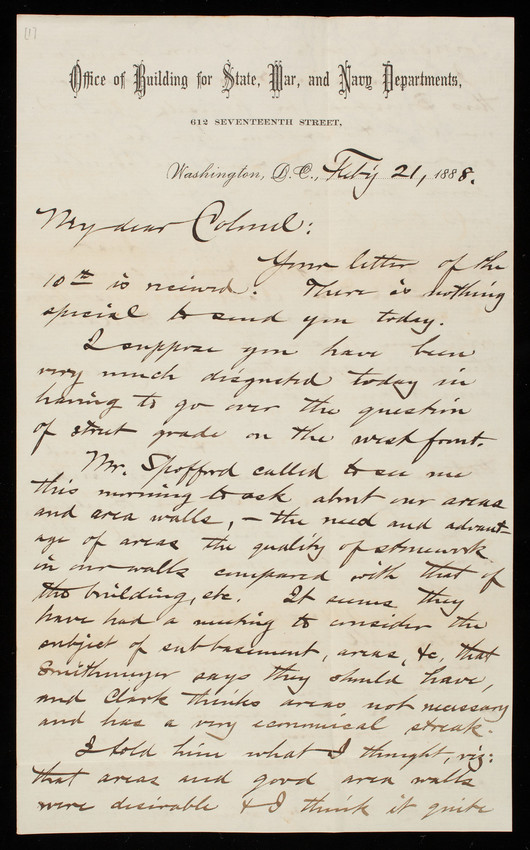 [1]
Office of Building for State, War, and Navy Departments,
612 SEVENTEENTH STREET,
Washington, D.C., Feb'y 21, 1888.
My dear Colonel:
Your letter of the
10th is received. There is nothing
special to send you today.
I suppose you have been
very much disgusted today in
having to go over the question
of street grade on the west front.
Mr. Spofford called to see me
this morning to ask about our areas
and area walls, - the need and advant-
age of areas the quality of stonework
in our walls compared with that of
the building, etc. It seems they
have had a meeting to consider the
subject of subbasement, areas, &c, that
Smithmeyer says they should have,
and Clark thinks areas not necessary
and has a very economical streak.
I told him what I thought, viz:
that areas and good area walls
were desirable & I think it quite